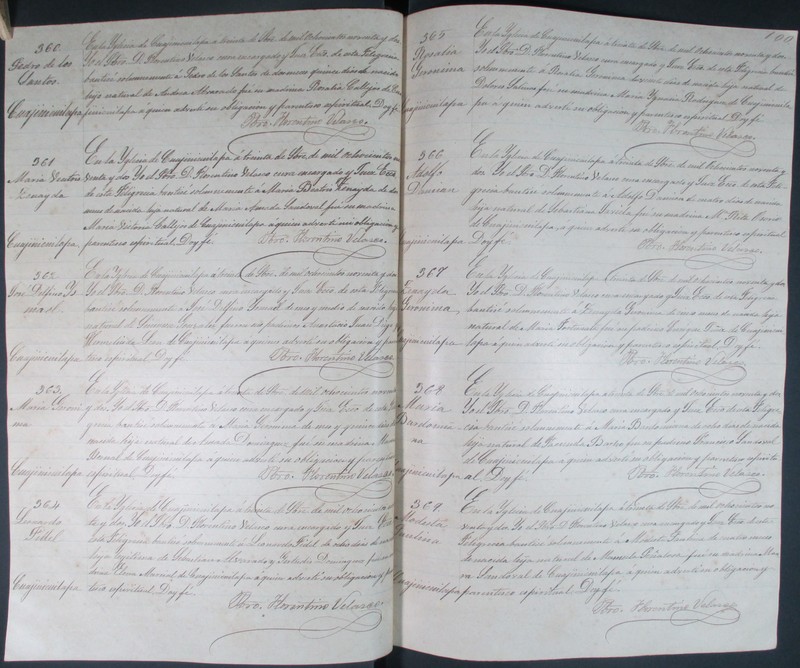 360.
Pedro de los
Santos.
Cuajinicuilapa
En la Yglesia de Cuajinicuilapa á treinta de Sbre. de mil ochocientos noventa y dos
Yo el Pbro. D. Florentino Velasco cura encargado y Juez Ecco. de esta Feligrecia
bautice solennemente á Pedro de los Santos de dos meses quince dias de nacido
hijo natural de
á quien adverti su obligacion y parentesco espiritual. Doy fé.
Pbro. Florentino Velasco.
361
Maria Ventura
Zenayda
Cuajinicuilapa.
En la Yglesia de Cuajinicuilapa á treinta de Sbre. de mil ochocientos no
venta y dos Yo el Pbro. D. Florentino Velasco cura encargado y Juez Ecco.
de esta Feligrecia bautice solennemente á Maria Ventura Zenayda de dos
meses de nacida hija natural de Maria Sandoval fue su madrina
Maria Victoria Callejo de Cuajinicuilapa á quien adverti su obligacion y
parentesco espiritual. Doy fé.
Pbro. Florentino Velasco.
362
José Delfino Ys
mael.
Cuajinicuilapa
En la Yglesia de Cuajinicuilapa á treinta de Sbre. de mil ochocientos noventa y dos
Yo el Pbro. D. Florentino Velasco cura encargado y Juez Ecco. de esta Feligrecia
bautice solennemente á José Delfino Ysmael de mes y medio de nacido hijo
natural de Gonzalez fueron sus padrinos
de Cuajinicuilapa á quienes adverti su obligacion y paren
tesco espiritual. Doy fé.
Pbro. Florentino Velasco.
363.
Maria Geroni
ma
Cuajinicuilapa
En la Yglesia de Cuajinicuilapa á treinta de Sbre. de mil ochocientos noventa
y dos, Yo el Pbro. D. Florentino Velasco cura encargado y Juez Ecco. de esta
grecia bautice solennemente á Maria Geronima de mes y quince dias de
nacida hija natural de Dominguez fué su madrina Maria
de Cuajinicuilapa á quien adverti su obligacion y parentesco
espiritual. Doy fé.
Pbro. Florentino Velasco.
364
Leonardo
Fidel
Cuajinicuilapa
En la Yglesia de Cuajinicuilapa á treinta de Sbre. de mil ochocientos noven
ta y dos Yo el Pbro. D. Florentino Velasco cura encargado y Juez Ecco. de
esta Feligrecia bautice solennemente á Leonardo Fidel de ocho dias de nacido
hijo legitimo de Sebastian Herrera y Gertrudis Dominguez
de Cuajinicuilapa á quien adverti su obligacion y paren
tesco espiritual. Doy fé.
Pbro. Florentino Velasco.
100
365
Rosalia
Geronima
Cuajinicuilapa
En la Yglesia de Cuajinicuilapa á treinta de Sbre. de mil ochocientos noventa y dos
Yo el Pbro. D. Florentino Velasco cura encargado y Juez Ecco. de esta Feligrecia bautice
solennemente á Rosalia Geronima de dias de nacida hija natural de
Dolores fué su madrina Maria Ygnacia Rodriguez de Cuajinicuila
pa á quien adverti su obligacion y parentesco espiritual. Doy fé.
Pbro. Florentino Velasco.
366
Adolfo
Damian
Cuajinicuilapa
En la Yglesia de Cuajinicuilapa á treinta de Sbre. de mil ochocientos noventa y
dos Yo el Pbro. D. Florentino Velasco cura encargado y Juez Ecco. de esta Feli
grecia bautice solennemente á Adolfo Damian de cuatro dias de nacido
hijo natural de Sebastiana fué su madrina Ma. Rita
de Cuajinicuilapa á quien adverti su obligacion y parentesco espiritual.
Doy fé.
Pbro. Florentino Velasco.
367
Zenayda
Geronima
Cuajinicuilapa
En la Yglesia de Cuajinicuilapa á treinta de Sbre. de mil ochocientos noventa y dos
Yo el Pbro. D. Florentino Velasco cura encargado y Juez Ecco. de esta Feligrecia
bautice solennemente á Zenayda Geronima de un mes de nacida hija
natural de Maria fué su padrino Enrique de Cuajinicui
lapa á quien adverti su obligacion y parentesco espiritual. Doy fé.
Pbro. Florentino Velasco.
368
Maria
Bardomia
na
Cuajinicuilapa
En la Yglesia de Cuajinicuilapa á treinta de Sbre. de mil ochocientos noventa y dos
Yo el Pbro. D. Florentino Velasco cura encargado y Juez Ecco. de esta Feligre
cia bautice solennemente á Maria de ocho dias de nacida
hija natural de fué su padrino Sandoval
de Cuajinicuilapa á quien adverti su obligacion y parentesco espiritu
al. Doy fé.
Pbro. Florentino Velasco.
369.
Modesta
Paulina
Cuajinicuilapa
En la Yglesia de Cuajinicuilapa á treinta de Sbre. de mil ochocientos no
venta y dos Yo el Pbro. D. Florentino Velasco cura encargado y Juez Ecco. de esta
Feligrecia bautice solennemente á Modesta Paulina de cuatro meses
de nacida hija natural de Manuela fué su madrina Ma
ria Sandoval de Cuajinicuilapa á quien adverti su obligacion y
parentesco espiritual. Doy fé.
Pbro. Florentino Velasco.